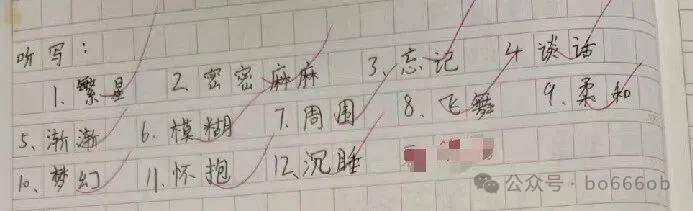 听写：
1、繁星 2、密密麻麻 3、忘记 4、谈话
5、渐渐 6、模糊 7、周围 8、飞舞 9、柔和
10、梦幻 11、怀抱 12、沉睡
公众号 · bo666ob